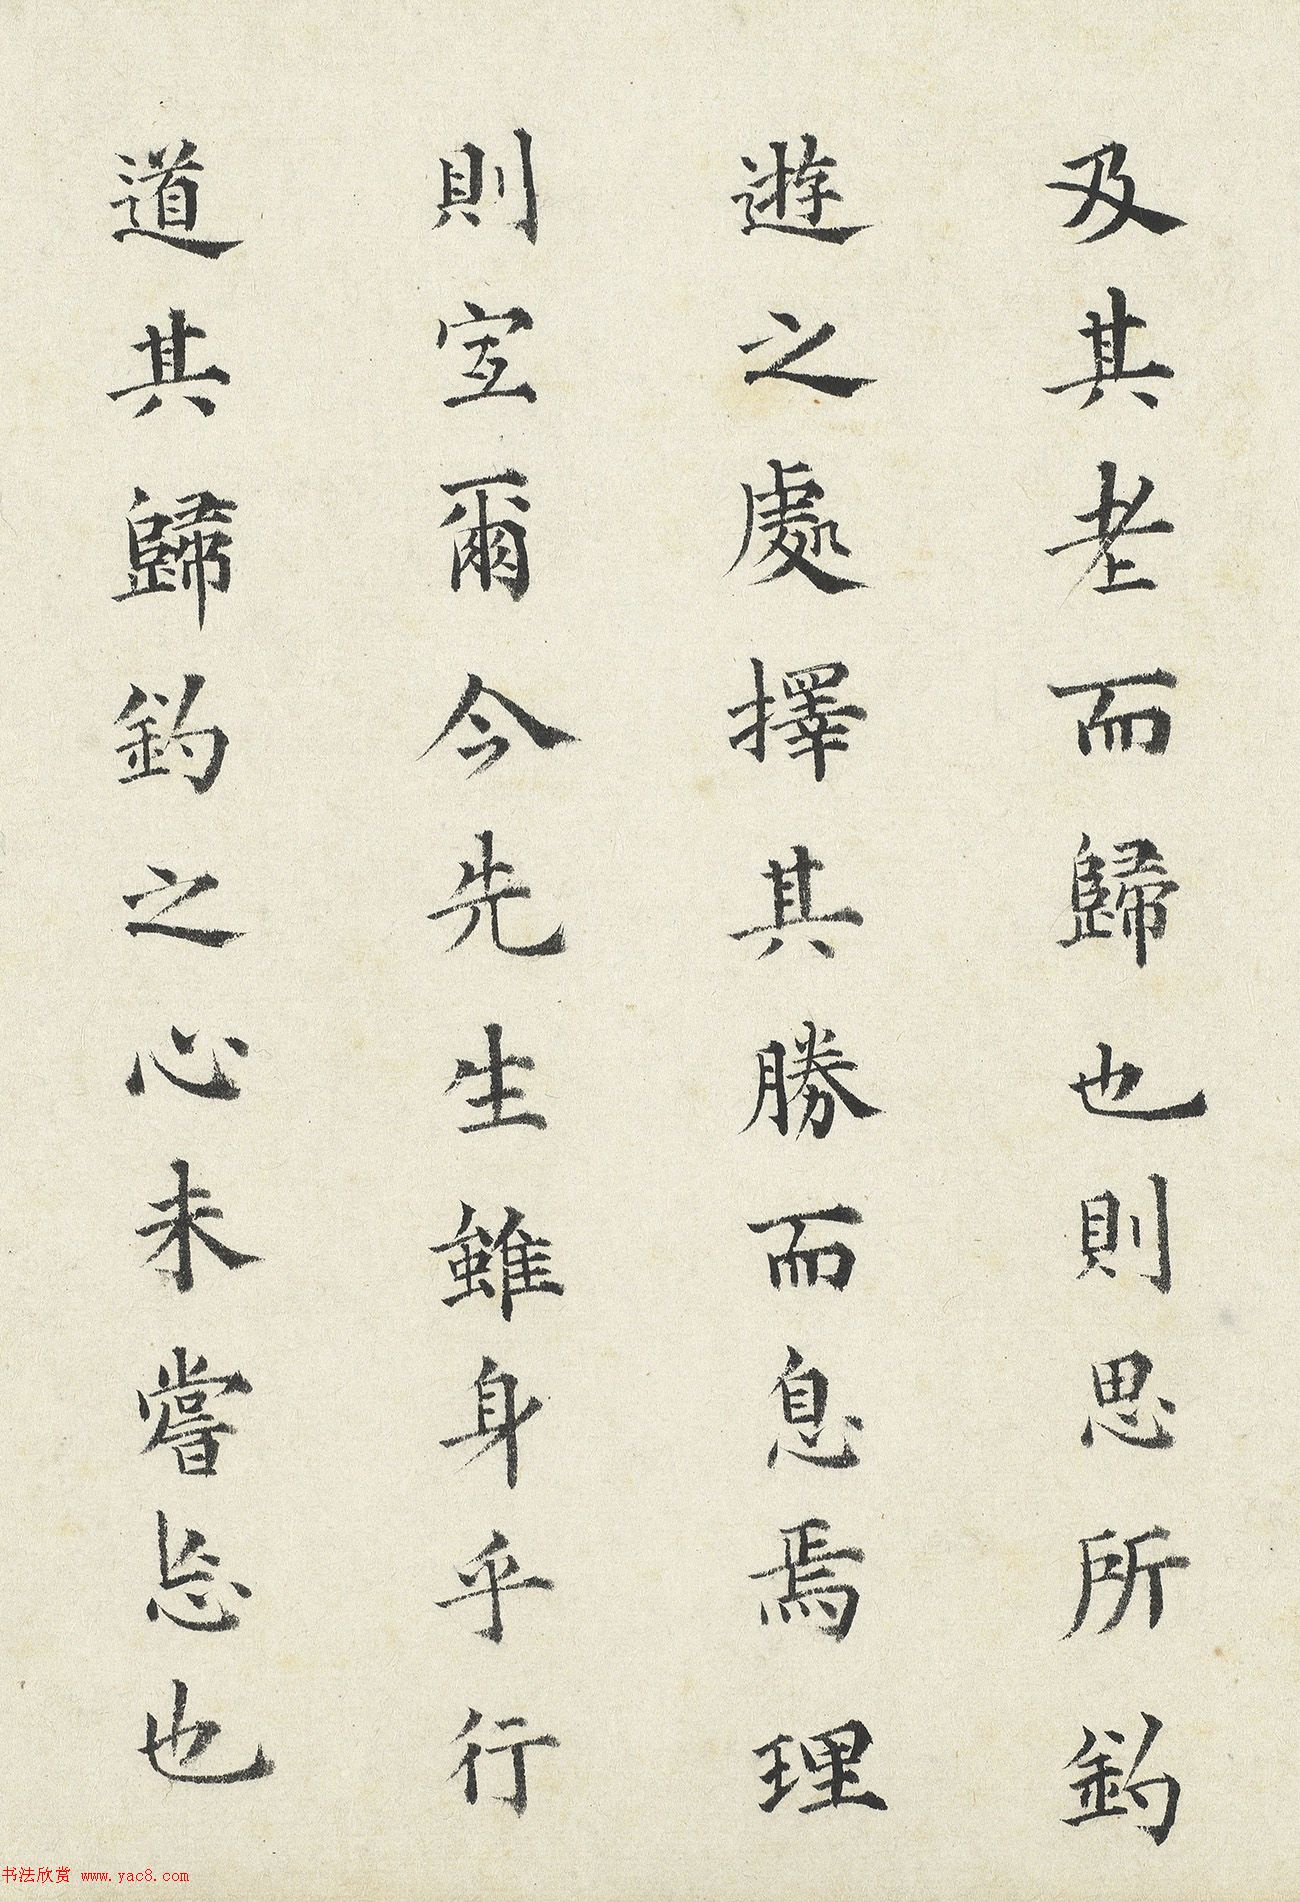 及其老而歸也則思所釣
遊之處擇其勝而息焉理
則宜爾今先生雖身乎行
道其歸釣之心未嘗忘也
书法欣赏 www.yac8.com